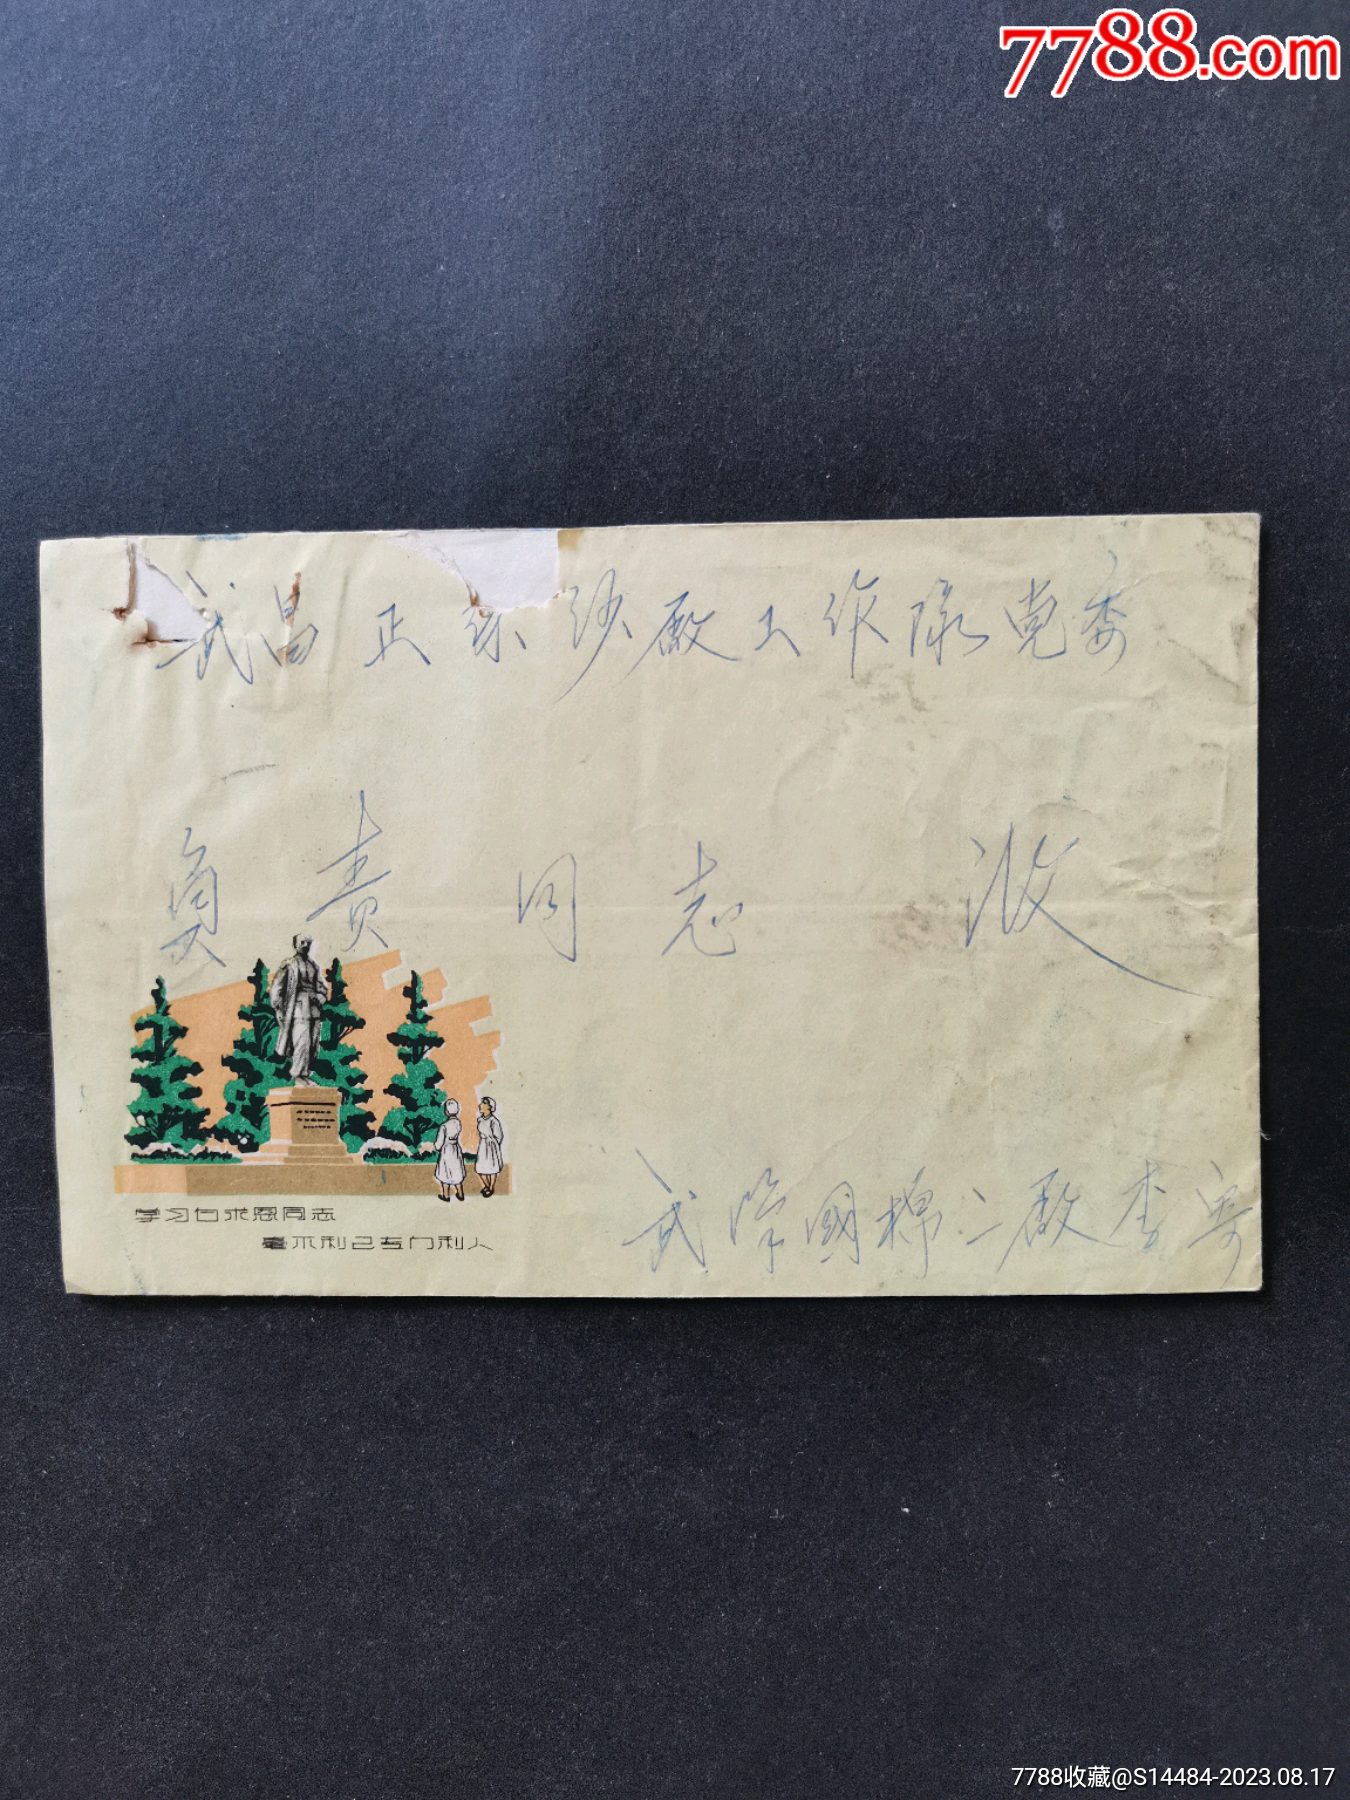 7788.com
武昌正 纱厰工作隊党委
负责同志 收
学习白求恩同志
毫不利己专门利人
武漢國棉二厰李寄
7788收藏@S14484-2023.08.17